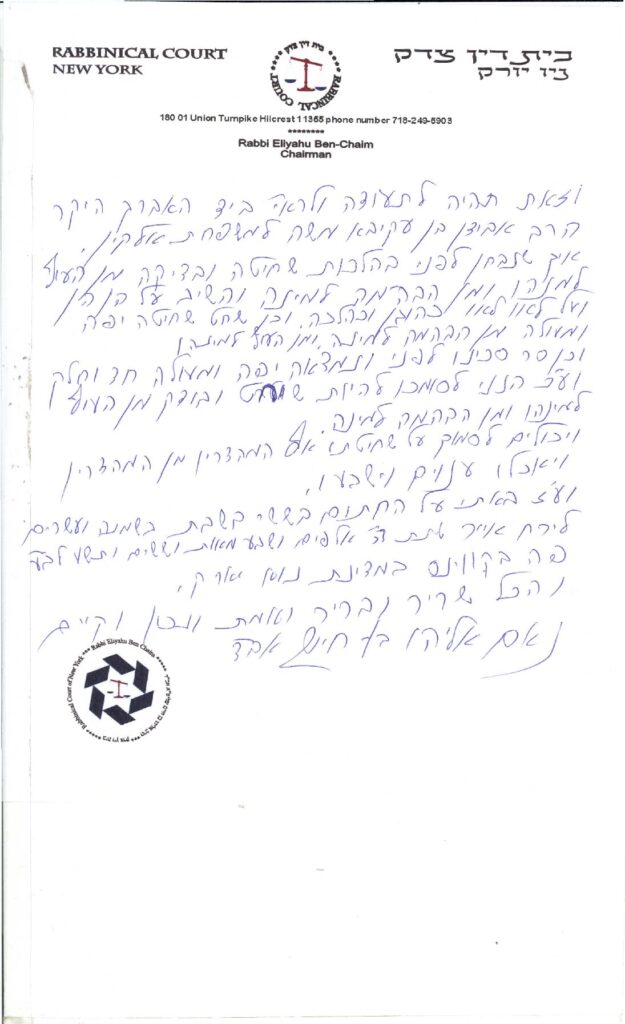 RABBINICAL COURT
NEW YORK
בית דין צדק
RABBINICAL COURT
בית דין צדק
ניו יורק
180 01 Union Turnpike Hilcrest 11365 phone number 718-249-5903
********
Rabbi Eliyahu Ben-Chaim
Chairman
וזאת תהיה לתעודה ולראי' ביד האברך היקר
הרב אבידן בן עקיבא משה למשפחת אלקין,
איך שנבחן לפני בהלכות שחיטה ובדיקה מן העוף
למינהו ומן הבהמה למינה והשיב על הן הן
ועל לאו לאו כהוגן וכהלכה, וכן שחט שחיטה יפה
ומעולה מן הבהמה למינה, ומן העוף למינהו
וכן סר סכינו לפני ונמצאה יפה ומעולה חד וחלק
וע"כ הנני לסומכו להיות שוחט ובודק מן העוף
למינהו ומן הבהמה למינה.
ויכולים לסמוך על שחיטתו אף המהדרין מן המהדרין
ויאכלו ענוים וישבעו,
וע"ז באתי על החתום בששי בשבת בשמנה ועשרים
לירח אייר שנת ה' אלפים ושבע מאות וששים ותשע לבע
פה בקווינס במדינת נוא יארק,
והכל שריר ובריר ואמת ונכון וקיים
נאם אליהו בן חיים אבד
Rabbinical Court of New York *** Rabbi Eliyahu Ben Chaim